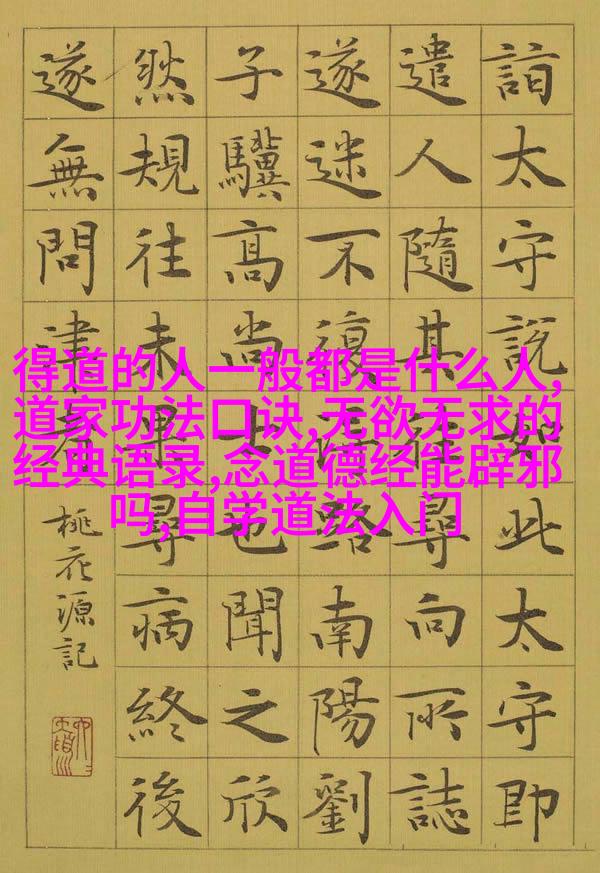 詣太守說如此太守即
遣人隨其往尋向所誌
遂迷不復得路南陽劉
子驥高尚士也聞之欣
然規往未果尋病終後
遂無問津者
桃花源記
得道的人一般都是什么人,
道家功法口诀,无欲无求的
经典语录,念道德经能辟邪
吗,自学道法入门